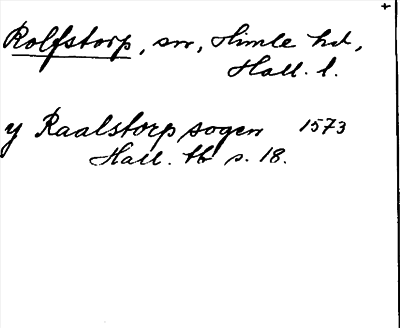 Rolfstorp, sn, Himle hd,
Hall. l.
y Raalstorp sogen 1573
Hall. tb s. 18.